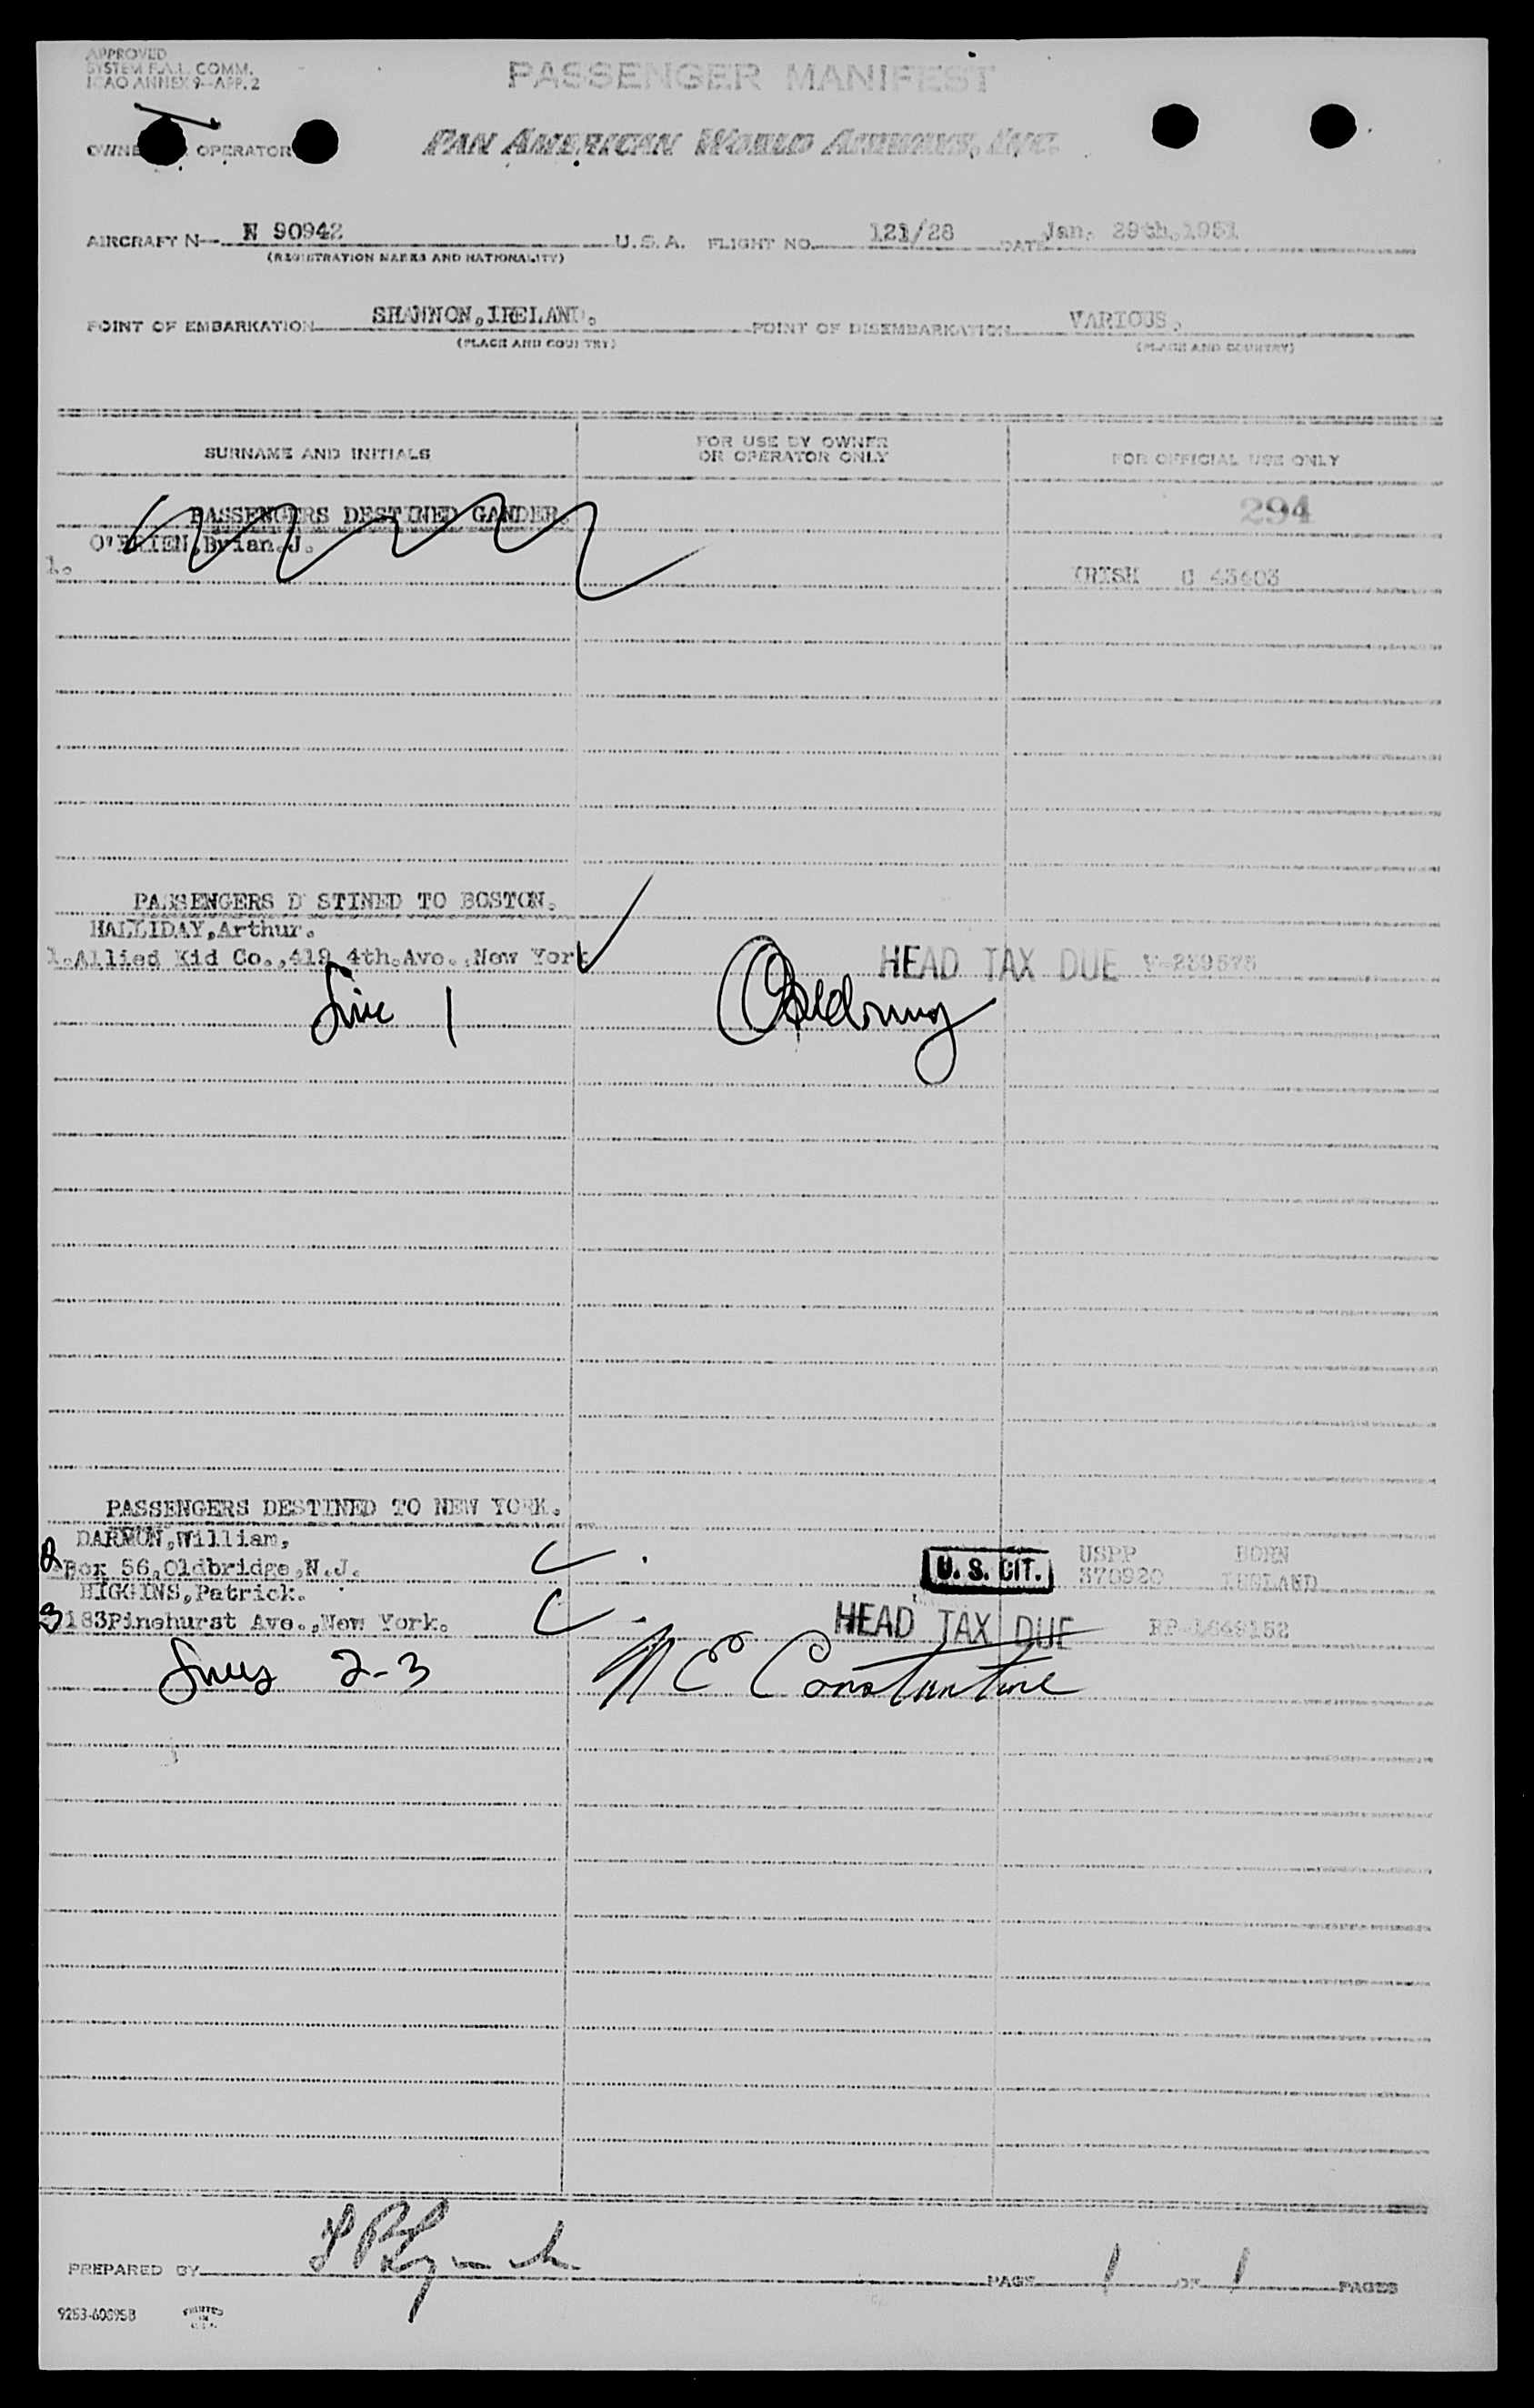 APPROVED
SYSTEM F.A.L. COMM.
ICAO ANNEX 9-APP. 2
PASSENGER MANIFEST
OPERATOR
PAN AMERICAN WORLD AIRWAYS, INC.
AIRCRAFT N N 90942 U.S.A. FLIGHT NO. 121/28 DATE Jan. 29th,1951
(REGISTRATION MARKS AND NATIONALITY)
POINT OF EMBARKATION SHANNON,IRELAND. POINT OF DISEMBARKATION VARIOUS.
(PLACE AND COUNTRY) (PLACE AND COUNTRY)
SURNAME AND INITIALS FOR USE BY OWNER OR OPERATOR ONLY FOR OFFICIAL USE ONLY
294
PASSENGERS DESTINED GANDER.
O'BRIEN,Brian.J.
1. IRISH C 43403
PASSENGERS D STINED TO BOSTON.
HALLIDAY,Arthur.
1.Allied Kid Co.,419 4th.Ave.,New York HEAD TAX DUE V-239575
Line 1
PASSENGERS DESTINED TO NEW YORK.
DARMON,William,
2 Box 56,Oldbridge,N.J. U. S. CIT. USPP 370920 BORN ENGLAND
HIGGINS,Patrick.
3 183Pinehurst Ave.,New York. HEAD TAX DUE RP-1649152
Lines 2-3 N E Constantine
PREPARED BY PAGE 1 OF 1 PAGES
9253-40895B PRINTED IN U.S.A.